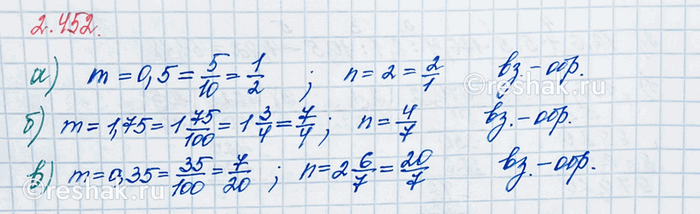 2.452.
а) m = 0,5 = 5/10 = 1/2 ; n = 2 = 2/1 вз.-обр.
б) m = 1,75 = 1 75/100 = 1 3/4 = 7/4 ; n = 4/7 вз.-обр.
в) m = 0,35 = 35/100 = 7/20 ; n = 2 6/7 = 20/7 вз.-обр.
©reshak.ru
reshak.ru